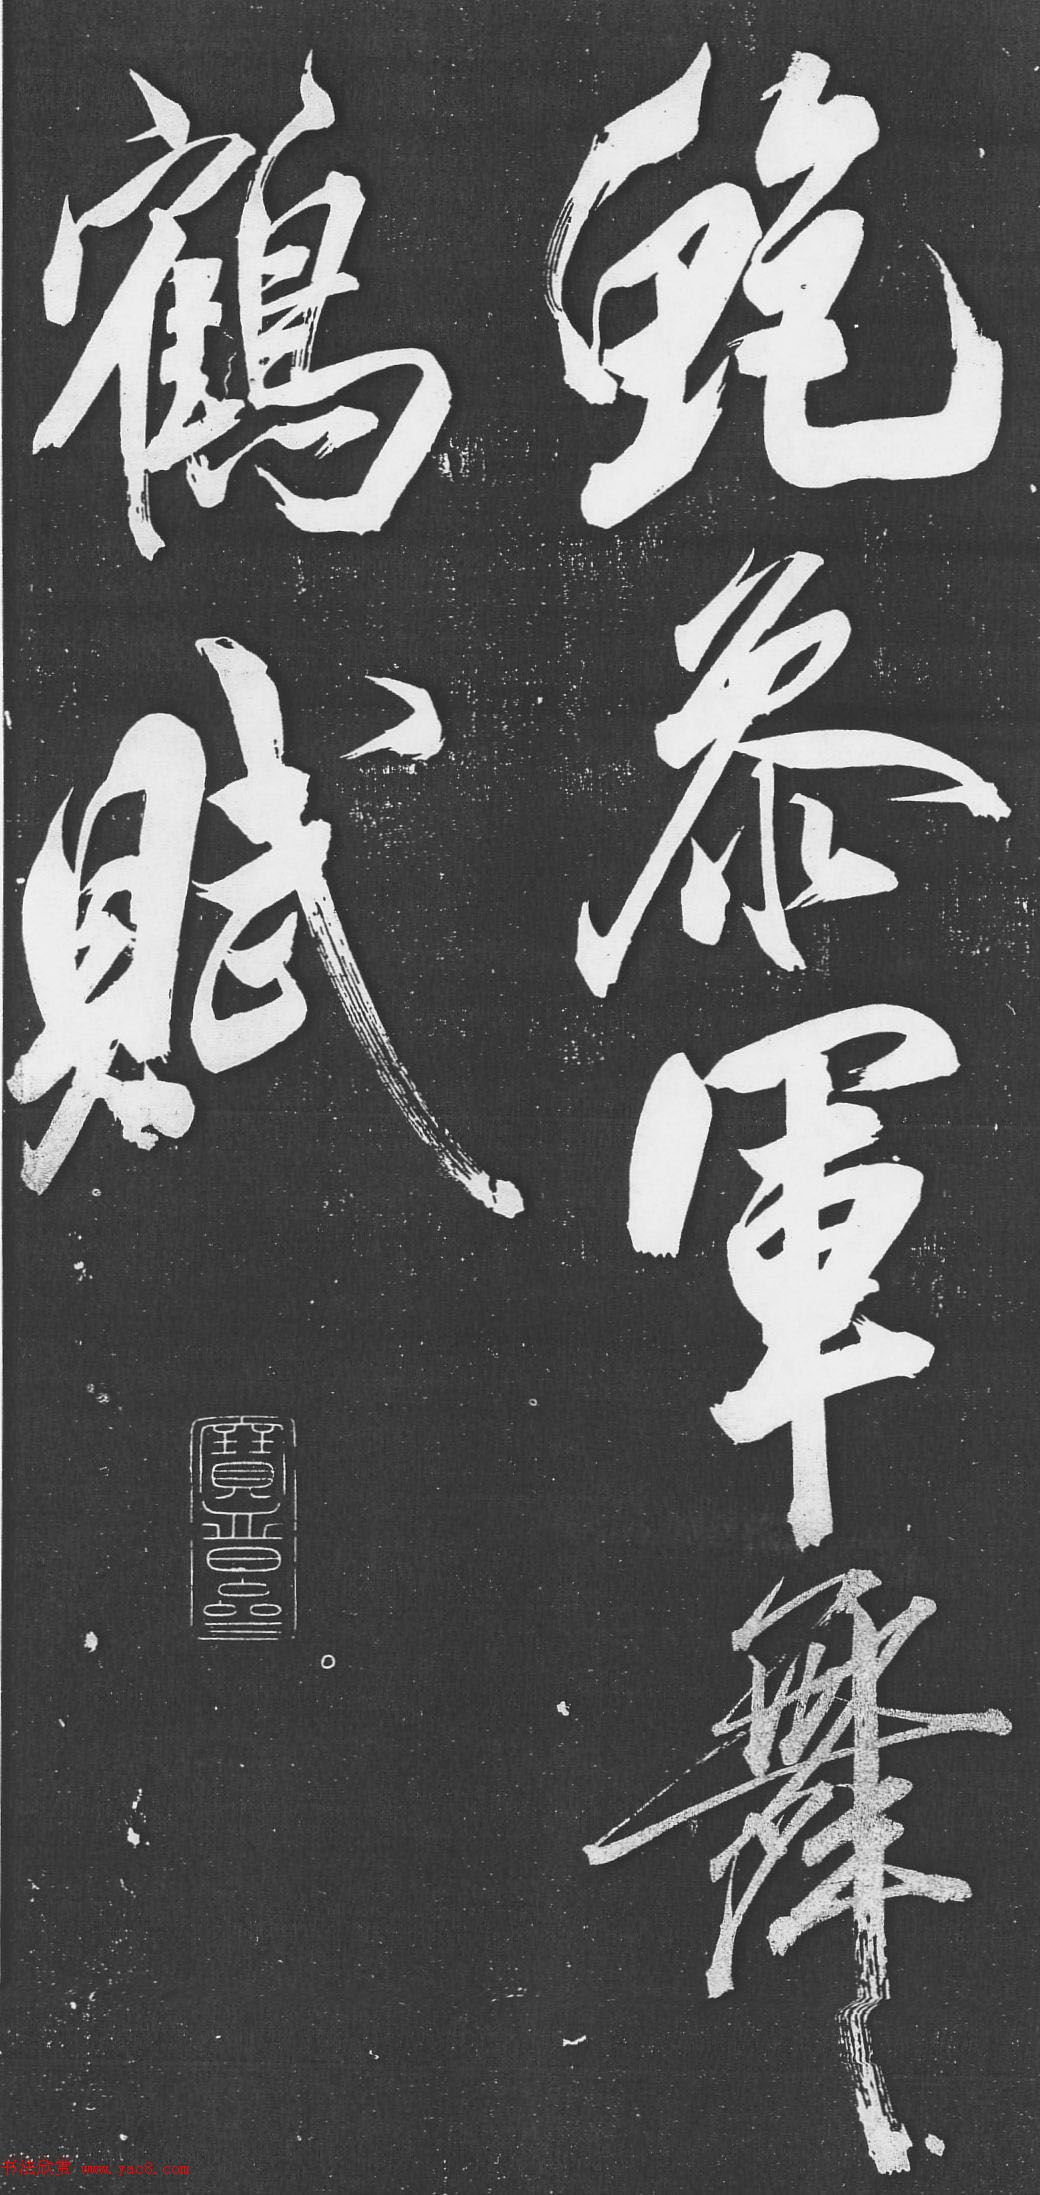 鮑叅軍舞
鶴賦
寶晉齋
书法欣赏 www.yac8.com